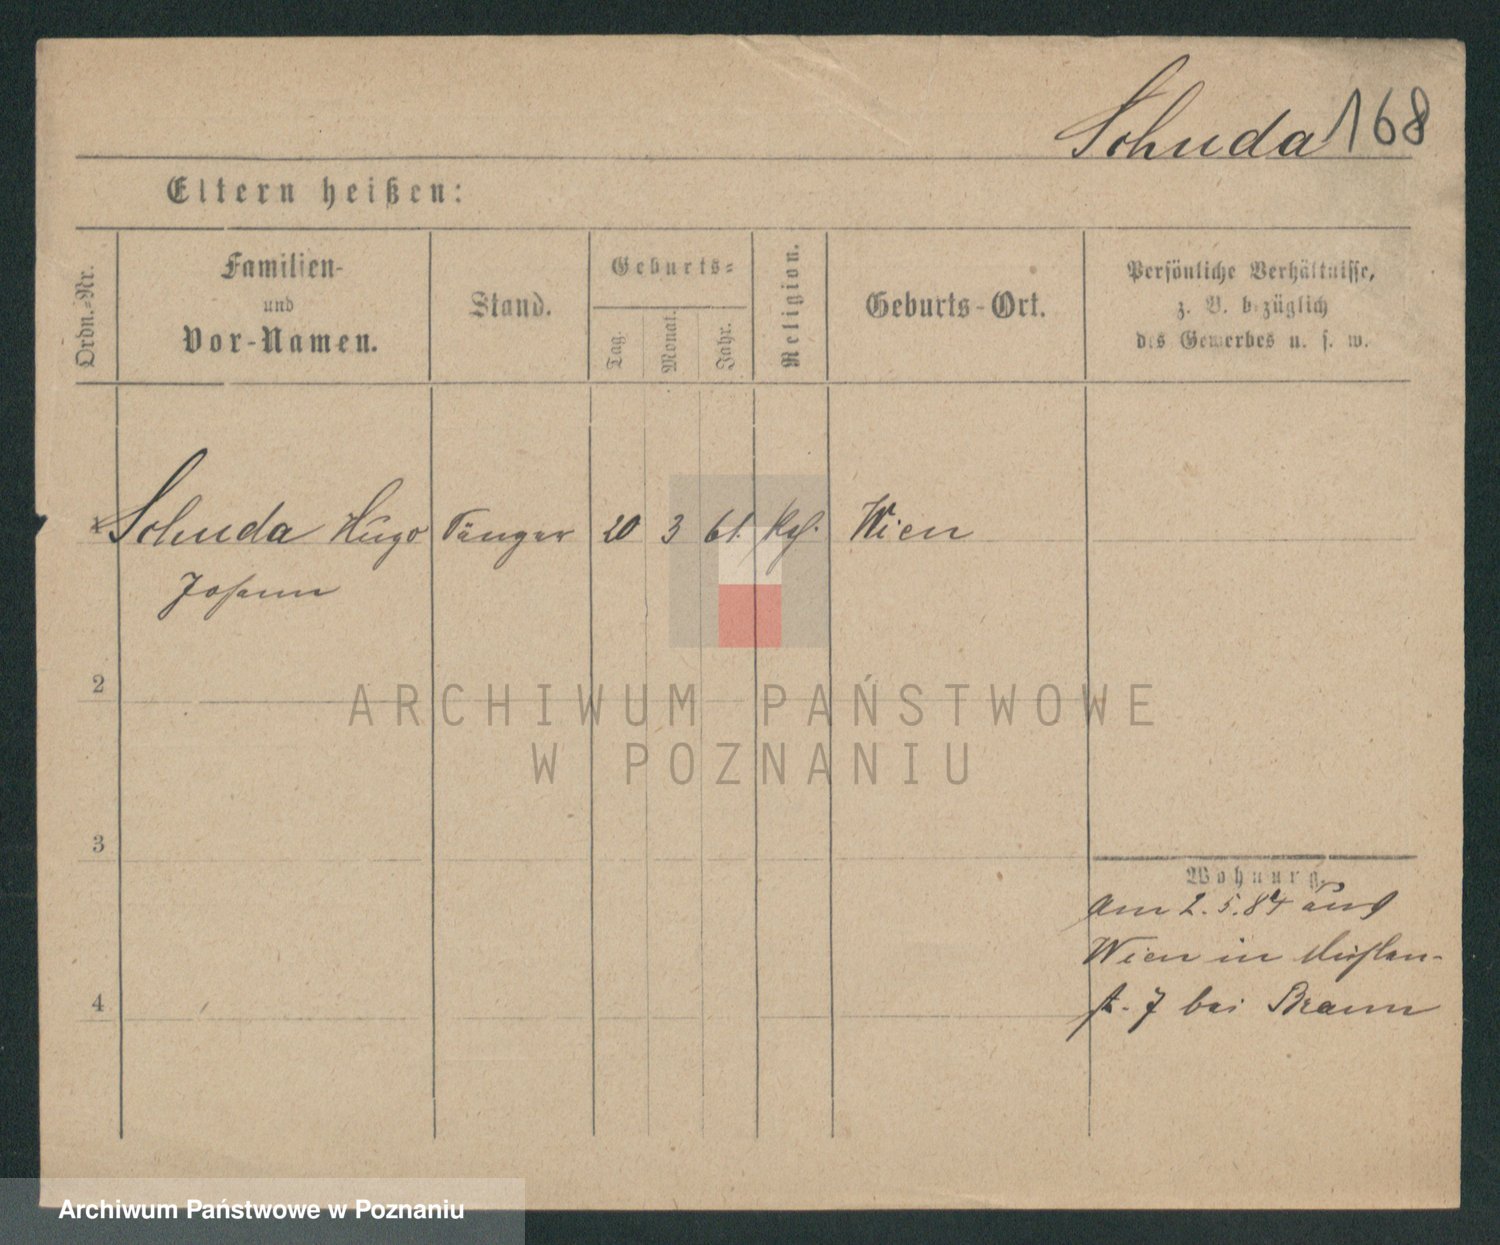 Sohuda 168
Eltern heißen:
Ordn.-Nr.
Familien-
und
Vor-Namen.
Stand.
Geburts-
Tag.
Monat.
Jahr.
Religion.
Geburts-Ort.
Persönliche Verhältnisse,
z. B. bezüglich
des Gewerbes u. s. w.
Sohuda Hugo Sänger 20 3 61. Wien
Johann
2
3
4
Wohnung.
Am 2. 5. 84 aus
Wien in
st. 7 bei Braun
ARCHIWUM PAŃSTWOWE
W POZNANIU
Archiwum Państwowe w Poznaniu